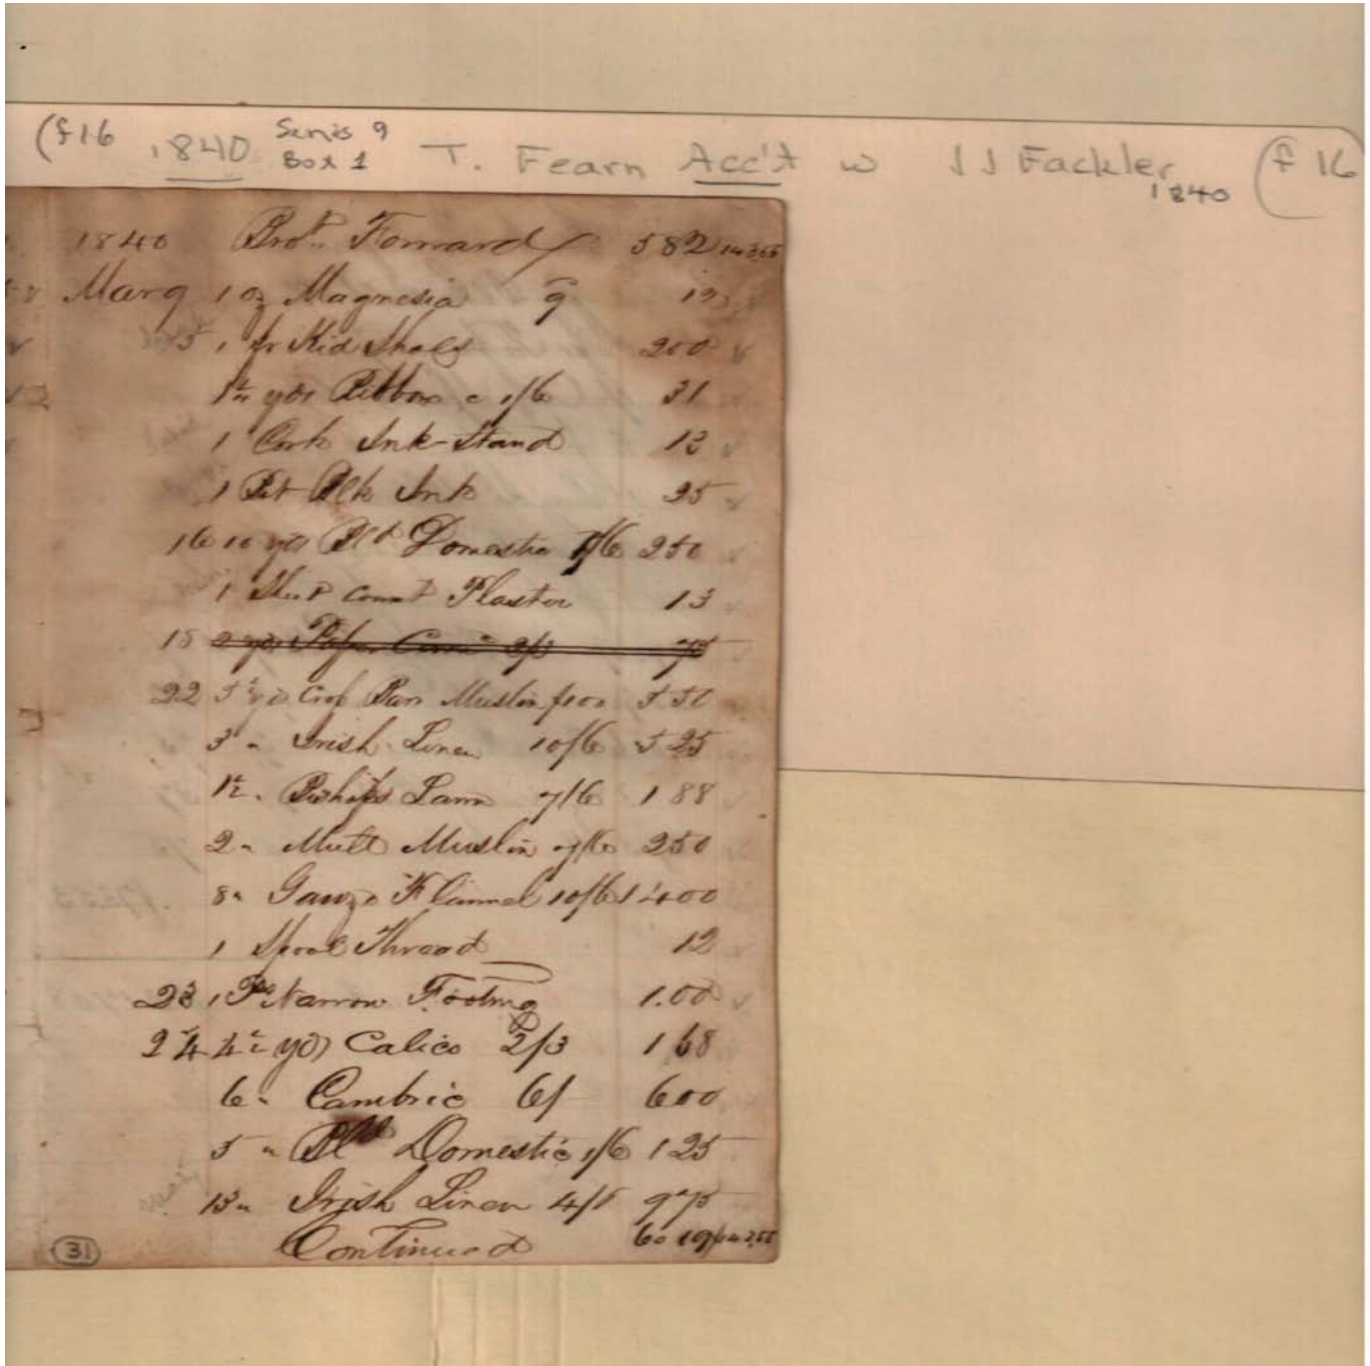 (f16 1840 Series 9 T. Fearn Acc't w J J Fackler (f 16
Box 1 1840
1840 Bro.t Forward 582 143,55
Mar 9 1 oz Magnesia 9 13
1 pr Kid 200
1½ yds Ribbon c 1/6 31
1 Cork Ink-Stand 13
1 Blk Ink 25
16 10 yds Bld Domestic 1/6 250
1 Court Plaster 13
18 2 yds 2/3 75
22 5½ yds Muslin $100 550
3 " Irish Linen 10/6 525
1½ " Bishops Lawn 7/6 188
2 " Mull Muslin 7/6 250
8 " Gauze Flannel 10/6 1400
1 Spool Thread 12
23 1 Ps Narrow Footing 1.00
24 4½ yds Calico 2/3 168
6 " Cambric 6/ 600
5 " Bld Domestic 1/6 125
13 " Irish Linen 4/6 975
Continued 60 19 143,55
31